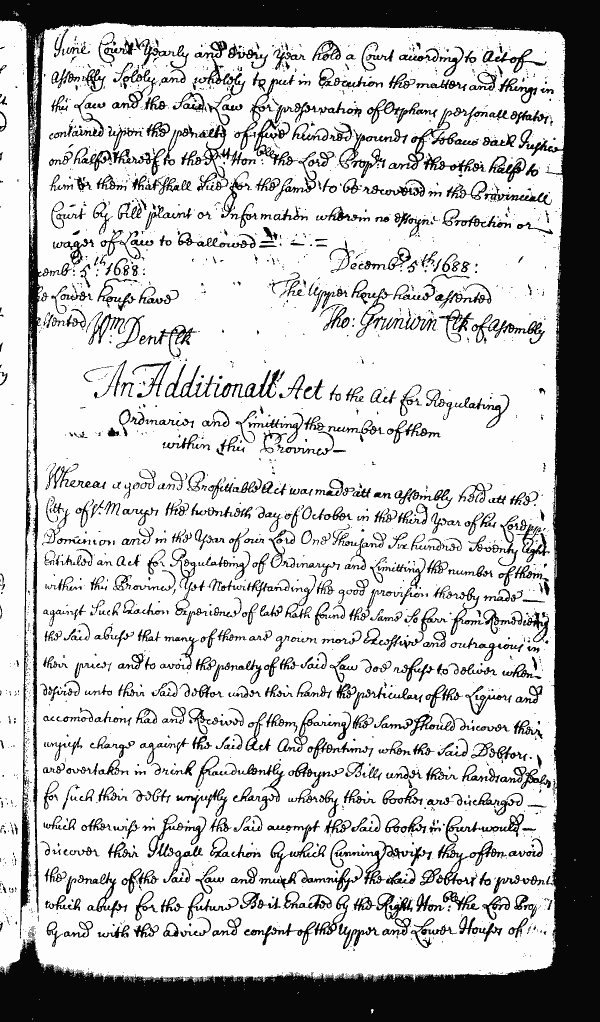 June Court Yearly and every Year hold a Court acording to Act of
Assembly Solely and wholely to put in Execution the matters and things in
this Law and the Said Law for preservation of Orphans personall estates
contained upon the penalty of five hundred pounds of Tobacco each Justice
one halfe thereof to the Rt. Honble. the Lord Propry. and the other halfe to
him or them that shall Sue for the same to be recovered in the Provinciall
Court by bill plaint or Information wherein no essoyne Protection or
wager of Law to be allowed
cembr. 5th. 1688:
Decembr. 5th. 1688:
e Lower house have
The Upper house have assented
ssented Wm. Dent Clk
Tho: Grunwin Clk of Assembly
An Additionall Act to the Act for Regulating
Ordinaries and Limitting the number of them
within this Province
Whereas a good and Profittable Act was made att an Assembly held att the
Citty of St. Maryes the twentieth day of October in the third Year of his Lordpps.
Dominion and in the Year of our Lord One Thousand Six hundred Seventy Eight
Entituled an Act for Regulateing of Ordinaryes and Limitting the number of them
within this Province, Yet Notwithstanding the good provision thereby made
against Such Exaction Experience of late hath found the Same So farr from Remedieing
the Said abuse that many of them are grown more Excessive and outragious in
their prices and to avoid the penalty of the Said Law doe refuse to deliver when
desired unto their Said debtor under their hands the perticulars of the Liquors and
accomodations had and Received of them fearing the Same should discover their
unjust charge against the Said Act And oftentimes when the Said Debtors
are overtaken in drink fraudulently obteyne Bills under their hands and Seales
for such their debts unjustly charged whereby their bookes are discharged
which otherwise in Sueing the Said accompt the Said bookes in Court would
discover their Illegall Exaction by which Cunning devises they often avoid
the penalty of the Said Law and much damnifye the said Debtors to prevent
which abuses for the future Be it Enacted by the Right Honble. the Lord Prop
by and with the advice and consent of the Upper and Lower Houses of